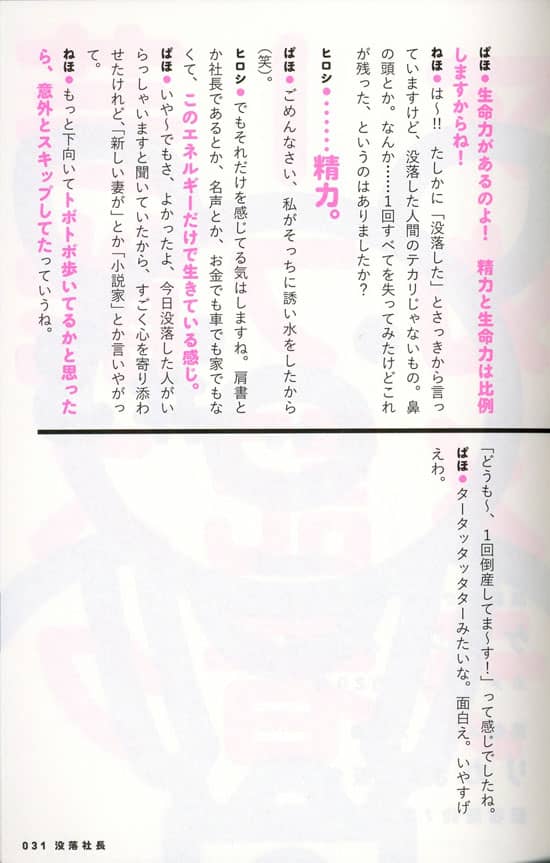 ぱほ●生命力があるのよ！　精力と生命力は比例
しますからね！
ねほ●は〜!!　たしかに「没落した」とさっきから言っ
ていますけど、没落した人間のテカリじゃないもの。鼻
の頭とか。なんか……1回すべてを失ってみたけどこれ
が残った、というのはありましたか？
ヒロシ●……精力。
ぱほ●ごめんなさい、私がそっちに誘い水をしたから
（笑）。
ヒロシ●でもそれだけを感じてる気はしますね。肩書と
か社長であるとか、名声とか、お金でも車でも家でもな
くて、このエネルギーだけで生きている感じ。
ぱほ●いや〜でもさ、よかったよ、今日没落した人がい
らっしゃいますと聞いていたから、すごく心を寄り添わ
せたけれど、「新しい妻が」とか「小説家」とか言いやがっ
て。
ねほ●もっと下向いてトボトボ歩いてるかと思った
ら、意外とスキップしてたっていうね。
「どうも〜、1回倒産してま〜す！」って感じでしたね。
ぱほ●タータッタッタターみたいな。面白え。いやすげ
えわ。
031 没落社長